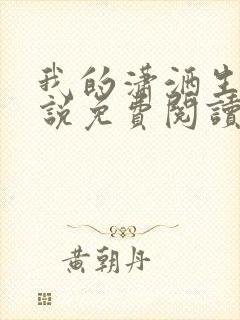 我的潇洒生
說免費閱讀
黄朝丹